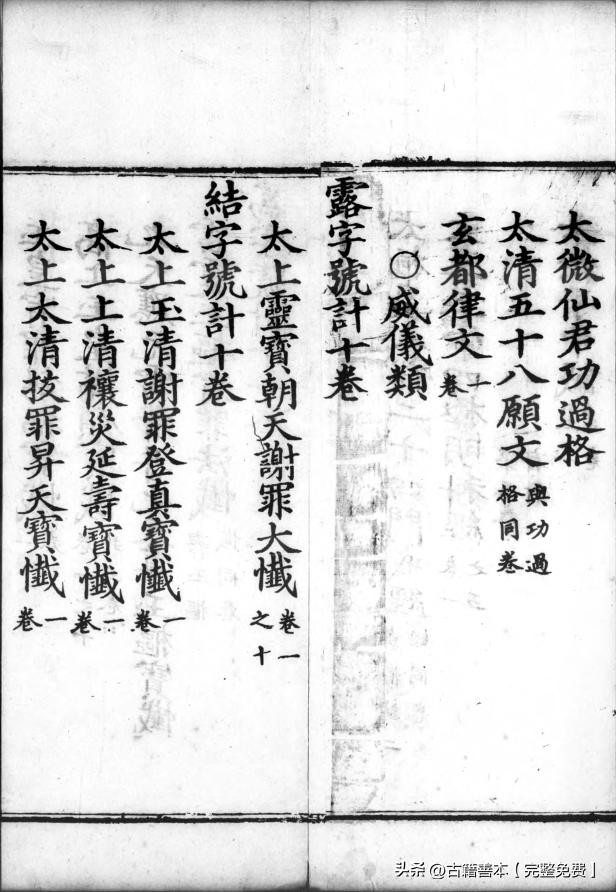 太微仙君功過格
太清五十八願文 與功過格同卷
玄都律文 一卷
○威儀類
露字號計十卷
太上靈寶朝天謝罪大懺 卷一之十
結字號計十卷
太上玉清謝罪登真寶懺 一卷
太上上清禳災延壽寶懺 一卷
太上太清拔罪昇天寶懺 一卷
头条 @古籍善本【完整免费】